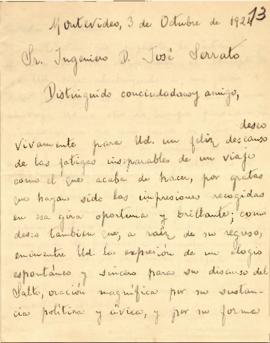 Montevideo, 3 de Octubre de 1924
13
Sr. Ingeniero D. José Serrato
Distinguido conciudadano y amigo,
deseo
vivamente para Ud. un feliz descanso
de las fatigas inseparables de un viaje
como el que acaba de hacer, por gratas
que hayan sido las impresiones recogidas
en esa gira oportuna y brillante; como
deseo tambien que, a raíz de su regreso,
encuentre Ud. la expresión de un elogio
espontáneo y sincero para su discurso del
Salto, oración magnífica por su sustan-
cia política y cívica, y por su forma